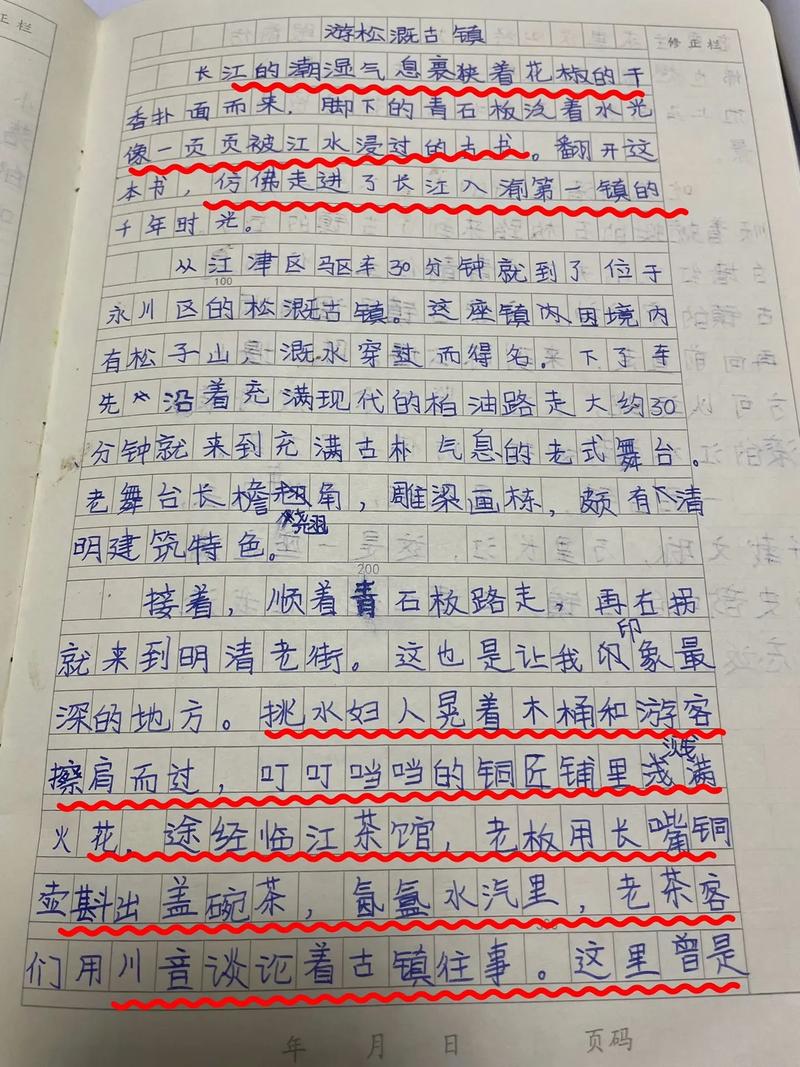 正栏
修正栏
游松溉古镇
长江的潮湿气息裹挟着花椒的干
香扑面而来，脚下的青石板泛着水光
像一页页被江水浸过的古书。翻开这
本书，仿佛走进了长江入渝第一镇的
千年时光。
从江津区驱车30分钟就到了位于
100
永川区的松溉古镇。这座镇内因境内
有松子山一溉水穿过而得名。下了车
先沿着充满现代的柏油路走大约30
分钟就来到充满古朴气息的老式舞台。
老舞台长檐翘角，雕梁画栋，颇有清
翘
明建筑特色。
200
接着，顺着青石板路走，再右拐
印
就来到明清老街。这也是让我印象最
深的地方。挑水妇人晃着木桶和游客
擦肩而过，叮叮当当的铜匠铺里溅满
溅
火花。途经临江茶馆，老板用长嘴铜
壶斟出盖碗茶，氤氲水汽里，老茶客
300
们用川音谈论着古镇往事。这里曾是
年 月 日 页码